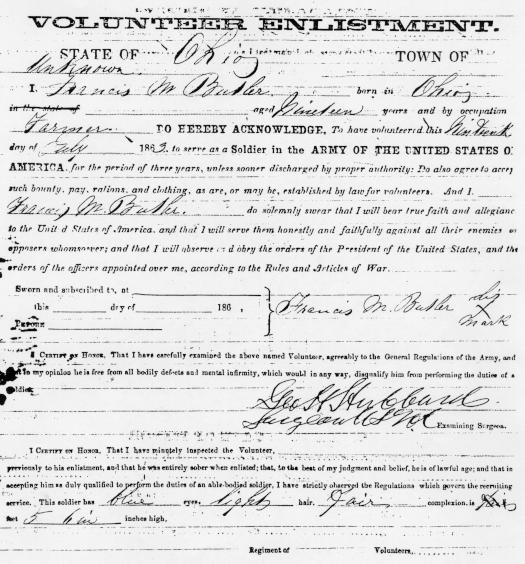 VOLUNTEER ENLISTMENT.
STATE OF Ohio TOWN OF
Unknown
I, Francis M Butler born in Ohio
in the state of aged Nineteen years and by occupation
Farmer DO HEREBY ACKNOWLEDGE, To have volunteered this
day of July 1862 to serve as a Soldier in the ARMY OF THE UNITED STATES O
AMERICA, for the period of three years, unless sooner discharged by proper authority: Do also agree to accep
such bounty, pay, rations, and clothing, as are, or may be, established by law for volunteers. And I
Francis M. Butler. do solemnly swear that I will bear true faith and allegianc
to the United States of America, and that I will serve them honestly and faithfully against all their enemies o
opposers whomsoever; and that I will observe and obey the orders of the President of the United States, and the
orders of the officers appointed over me, according to the Rules and Articles of War.
Sworn and subscribed to, at
this day of 186 , Francis M. Butler his
BEFORE X mark
I CERTIFY ON HONOR, That I have carefully examined the above named Volunteer, agreeably to the General Regulations of the Army, and
in my opinion he is free from all bodily defects and mental infirmity, which would in any way, disqualify him from performing the duties of a
soldier.
Geo H Hubbard
Surgeon U S Vol Examining Surgeon.
I CERTIFY ON HONOR, That I have minutely inspected the Volunteer,
previously to his enlistment, and that he was entirely sober when enlisted; that, to the best of my judgment and belief, he is of lawful age; and that in
accepting him as duly qualified to perform the duties of an able-bodied soldier, I have strictly observed the Regulations which govern the recruiting
service. This soldier has blue eyes, light hair, Fair complexion, is
feet 5 inches high,
Regiment of Volunteers,